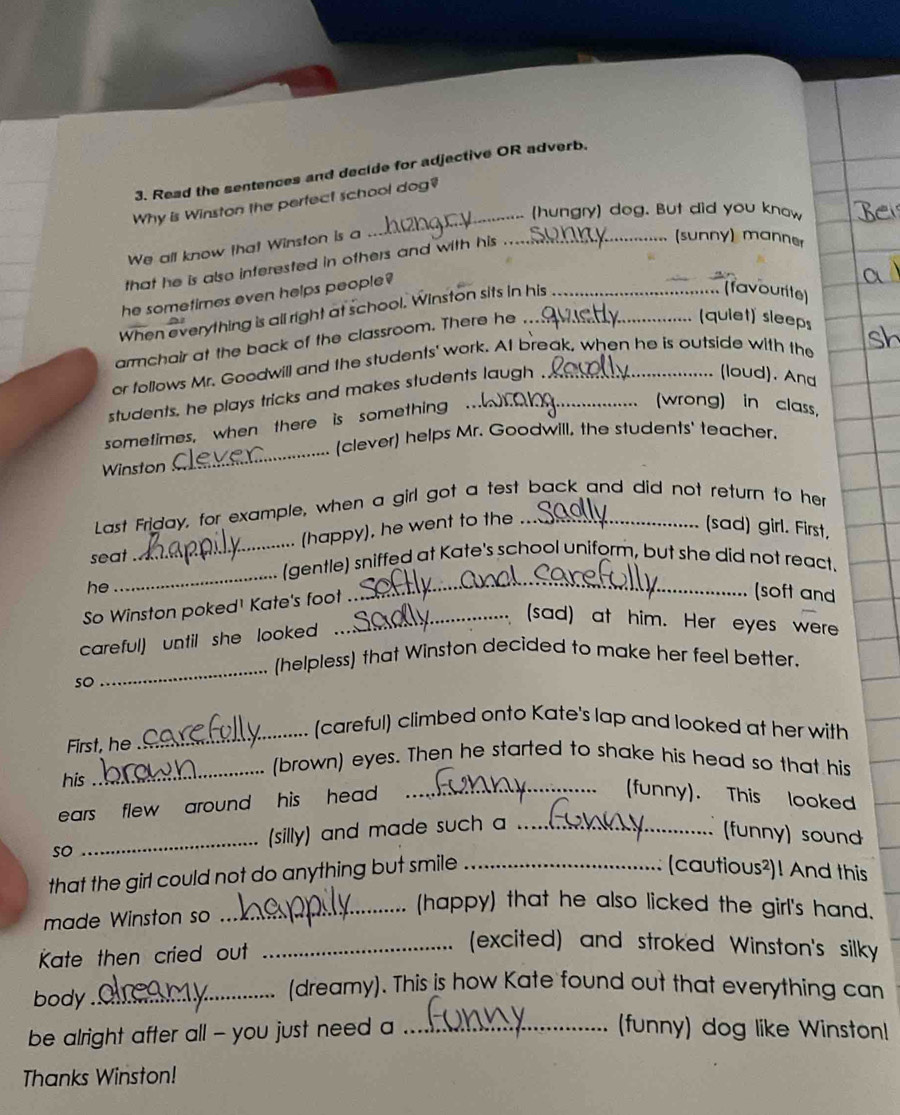 3. Read the sentences and decide for adjective OR adverb.
Why is Winston the perfect school dog?
We all know that Winston is a hungry (hungry) dog. But did you know
that he is also interested in others and with his sunny (sunny) manner
he sometimes even helps people?
When everything is all right at school, Winston sits in his .......... (favourite)
armchair at the back of the classroom. There he quietly (quiet) sleeps
or follows Mr. Goodwill and the students' work. At break, when he is outside with the
students, he plays tricks and makes students laugh loudly (loud). And
sometimes, when there is something wrong (wrong) in class,
Winston clever (clever) helps Mr. Goodwill, the students' teacher.
Last Friday, for example, when a girl got a test back and did not return to her
seat happily (happy), he went to the sadly (sad) girl. First,
he .......... (gentle) sniffed at Kate's school uniform, but she did not react.
So Winston poked¹ Kate's foot softly and carefully (soft and
careful) until she looked sadly (sad) at him. Her eyes were
so .......... (helpless) that Winston decided to make her feel better.
First, he carefully (careful) climbed onto Kate's lap and looked at her with
his brown (brown) eyes. Then he started to shake his head so that his
ears flew around his head funny (funny). This looked
so .......... (silly) and made such a funny (funny) sound
that the girl could not do anything but smile .......... (cautious²)! And this
made Winston so happily (happy) that he also licked the girl's hand.
Kate then cried out .......... (excited) and stroked Winston's silky
body dreamy (dreamy). This is how Kate found out that everything can
be alright after all – you just need a funny (funny) dog like Winston!
Thanks Winston!
Bei
a
sh